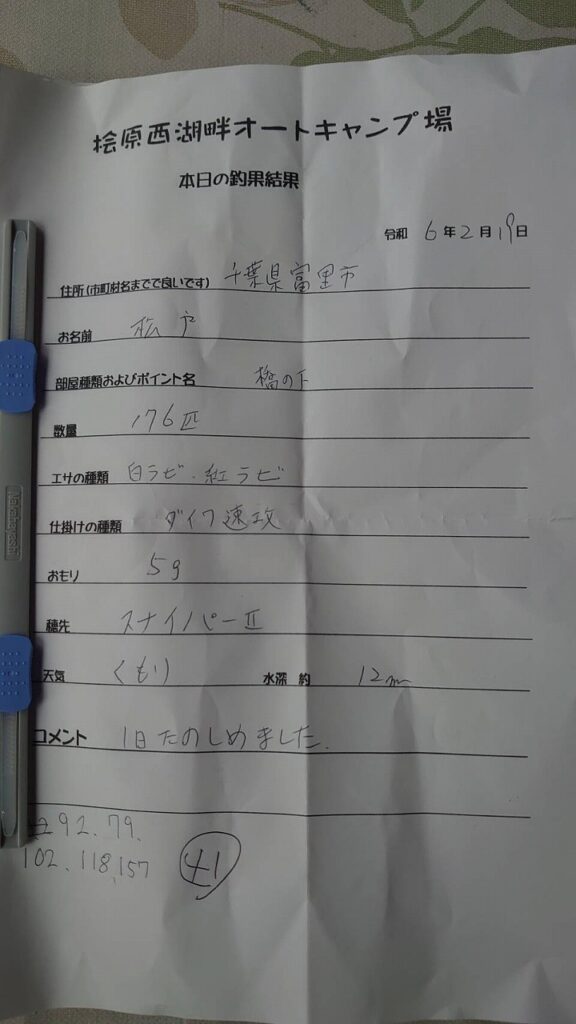 桧原西湖畔オートキャンプ場
本日の釣果結果
令和 6年2月19日
住所(市町村名までで良いです) 千葉県富里市
お名前 松戸
部屋種類およびポイント名 橋の下
数量 176匹
エサの種類 白ラビ.紅ラビ
仕掛けの種類 ダイワ速攻
おもり 5g
穂先 スナイパーⅡ
天気 くもり 水深 約 12m
コメント 1日たのしめました.
92.79.
102.118.157 41
Nakabayashi